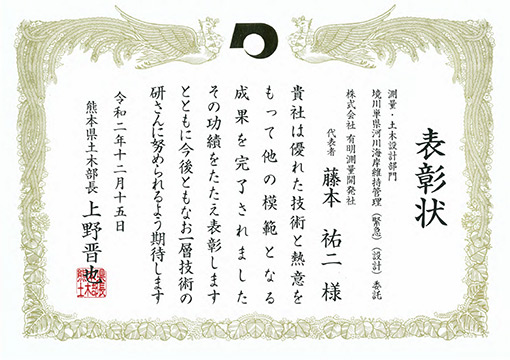 表彰状
測量・土木設計部門
境川単県河川海岸維持管理（緊急）（設計）委託
株式会社 有明測量開発社
代表者 藤本 祐二 様
貴社は優れた技術と熱意を
もって他の模範となる
成果を完了されました
その功績をたたえ表彰します
とともに今後ともなお一層技術の
研さんに努められるよう期待します
令和二年十二月十五日
熊本県土木部長 上野晋也